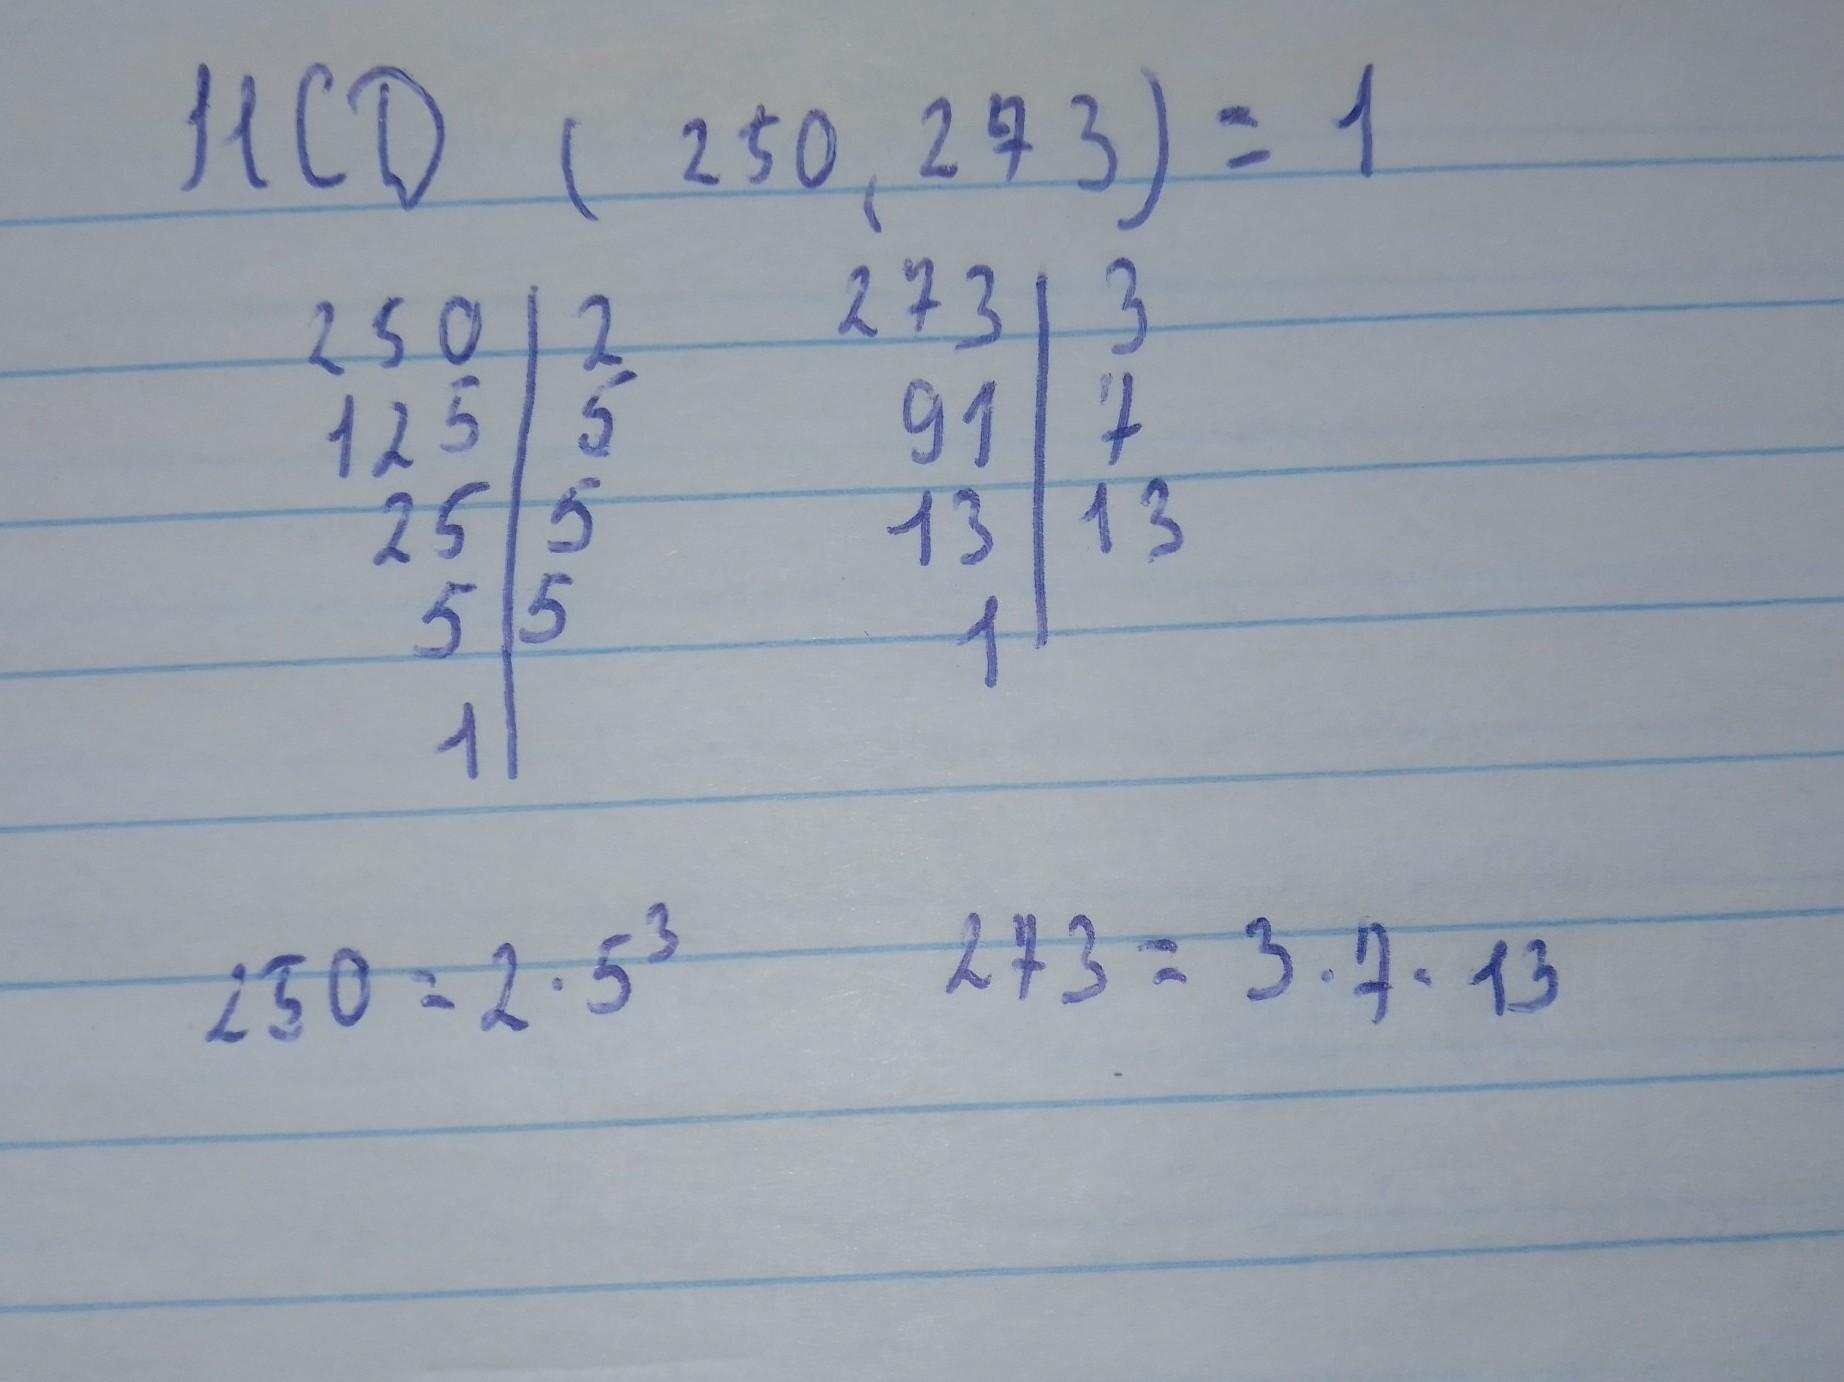 HCD ( 250, 273) = 1
250 | 2
125 | 5
25 | 5
5 | 5
1 |
273 | 3
91 | 7
13 | 13
1 |
250 = 2 · 5³
273 = 3 · 7 · 13